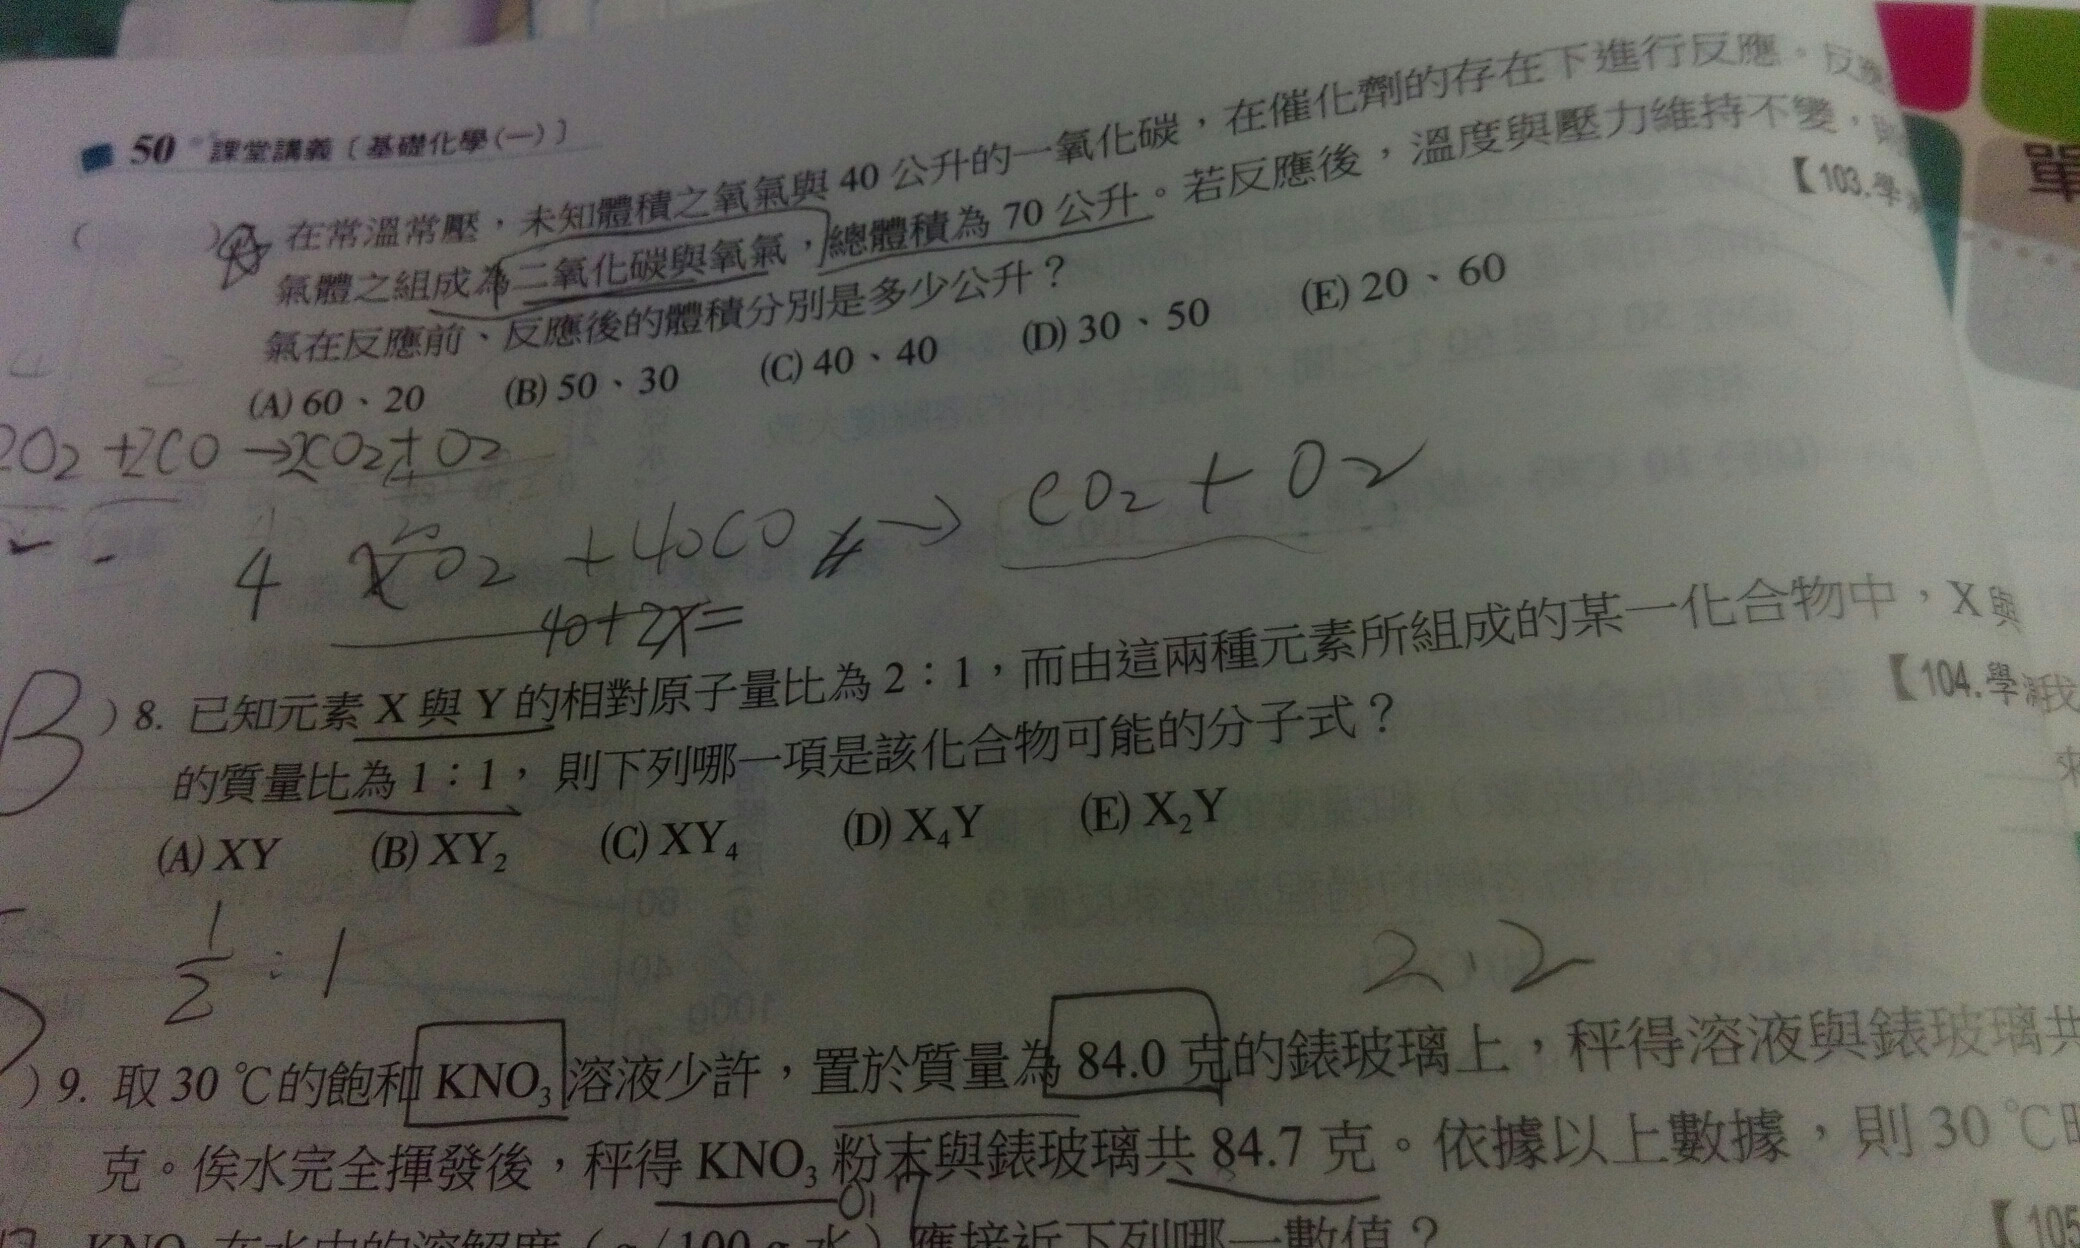 50 課堂講義〔基礎化學(一)〕
單
( ) 在常溫常壓，未知體積之氧氣與 40 公升的一氧化碳，在催化劑的存在下進行反應。反應
氣體之組成為二氧化碳與氧氣，總體積為 70 公升。若反應後，溫度與壓力維持不變，
氣在反應前、反應後的體積分別是多少公升？
【103.學
(A) 60、20 (B) 50、30 (C) 40、40 (D) 30、50 (E) 20、60
2O2 + 2CO → 2CO2 + O2
4 O2 + 40CO → CO2 + O2
40+2X=
B )8. 已知元素 X 與 Y 的相對原子量比為 2：1，而由這兩種元素所組成的某一化合物中，X 與
的質量比為 1：1， 則下列哪一項是該化合物可能的分子式？
【104.學測
(A) XY (B) XY₂ (C) XY₄ (D) X₄Y (E) X₂Y
1/2 : 1
2.2
)9. 取 30 ℃的飽和 KNO₃ 溶液少許，置於質量為 84.0 克的錶玻璃上，秤得溶液與錶玻璃共
克。俟水完全揮發後，秤得 KNO₃ 粉末與錶玻璃共 84.7 克。依據以上數據，則 30 ℃時
0.7
在水中的溶解度（g／100 g 水）應接近下列哪一數值？
【105